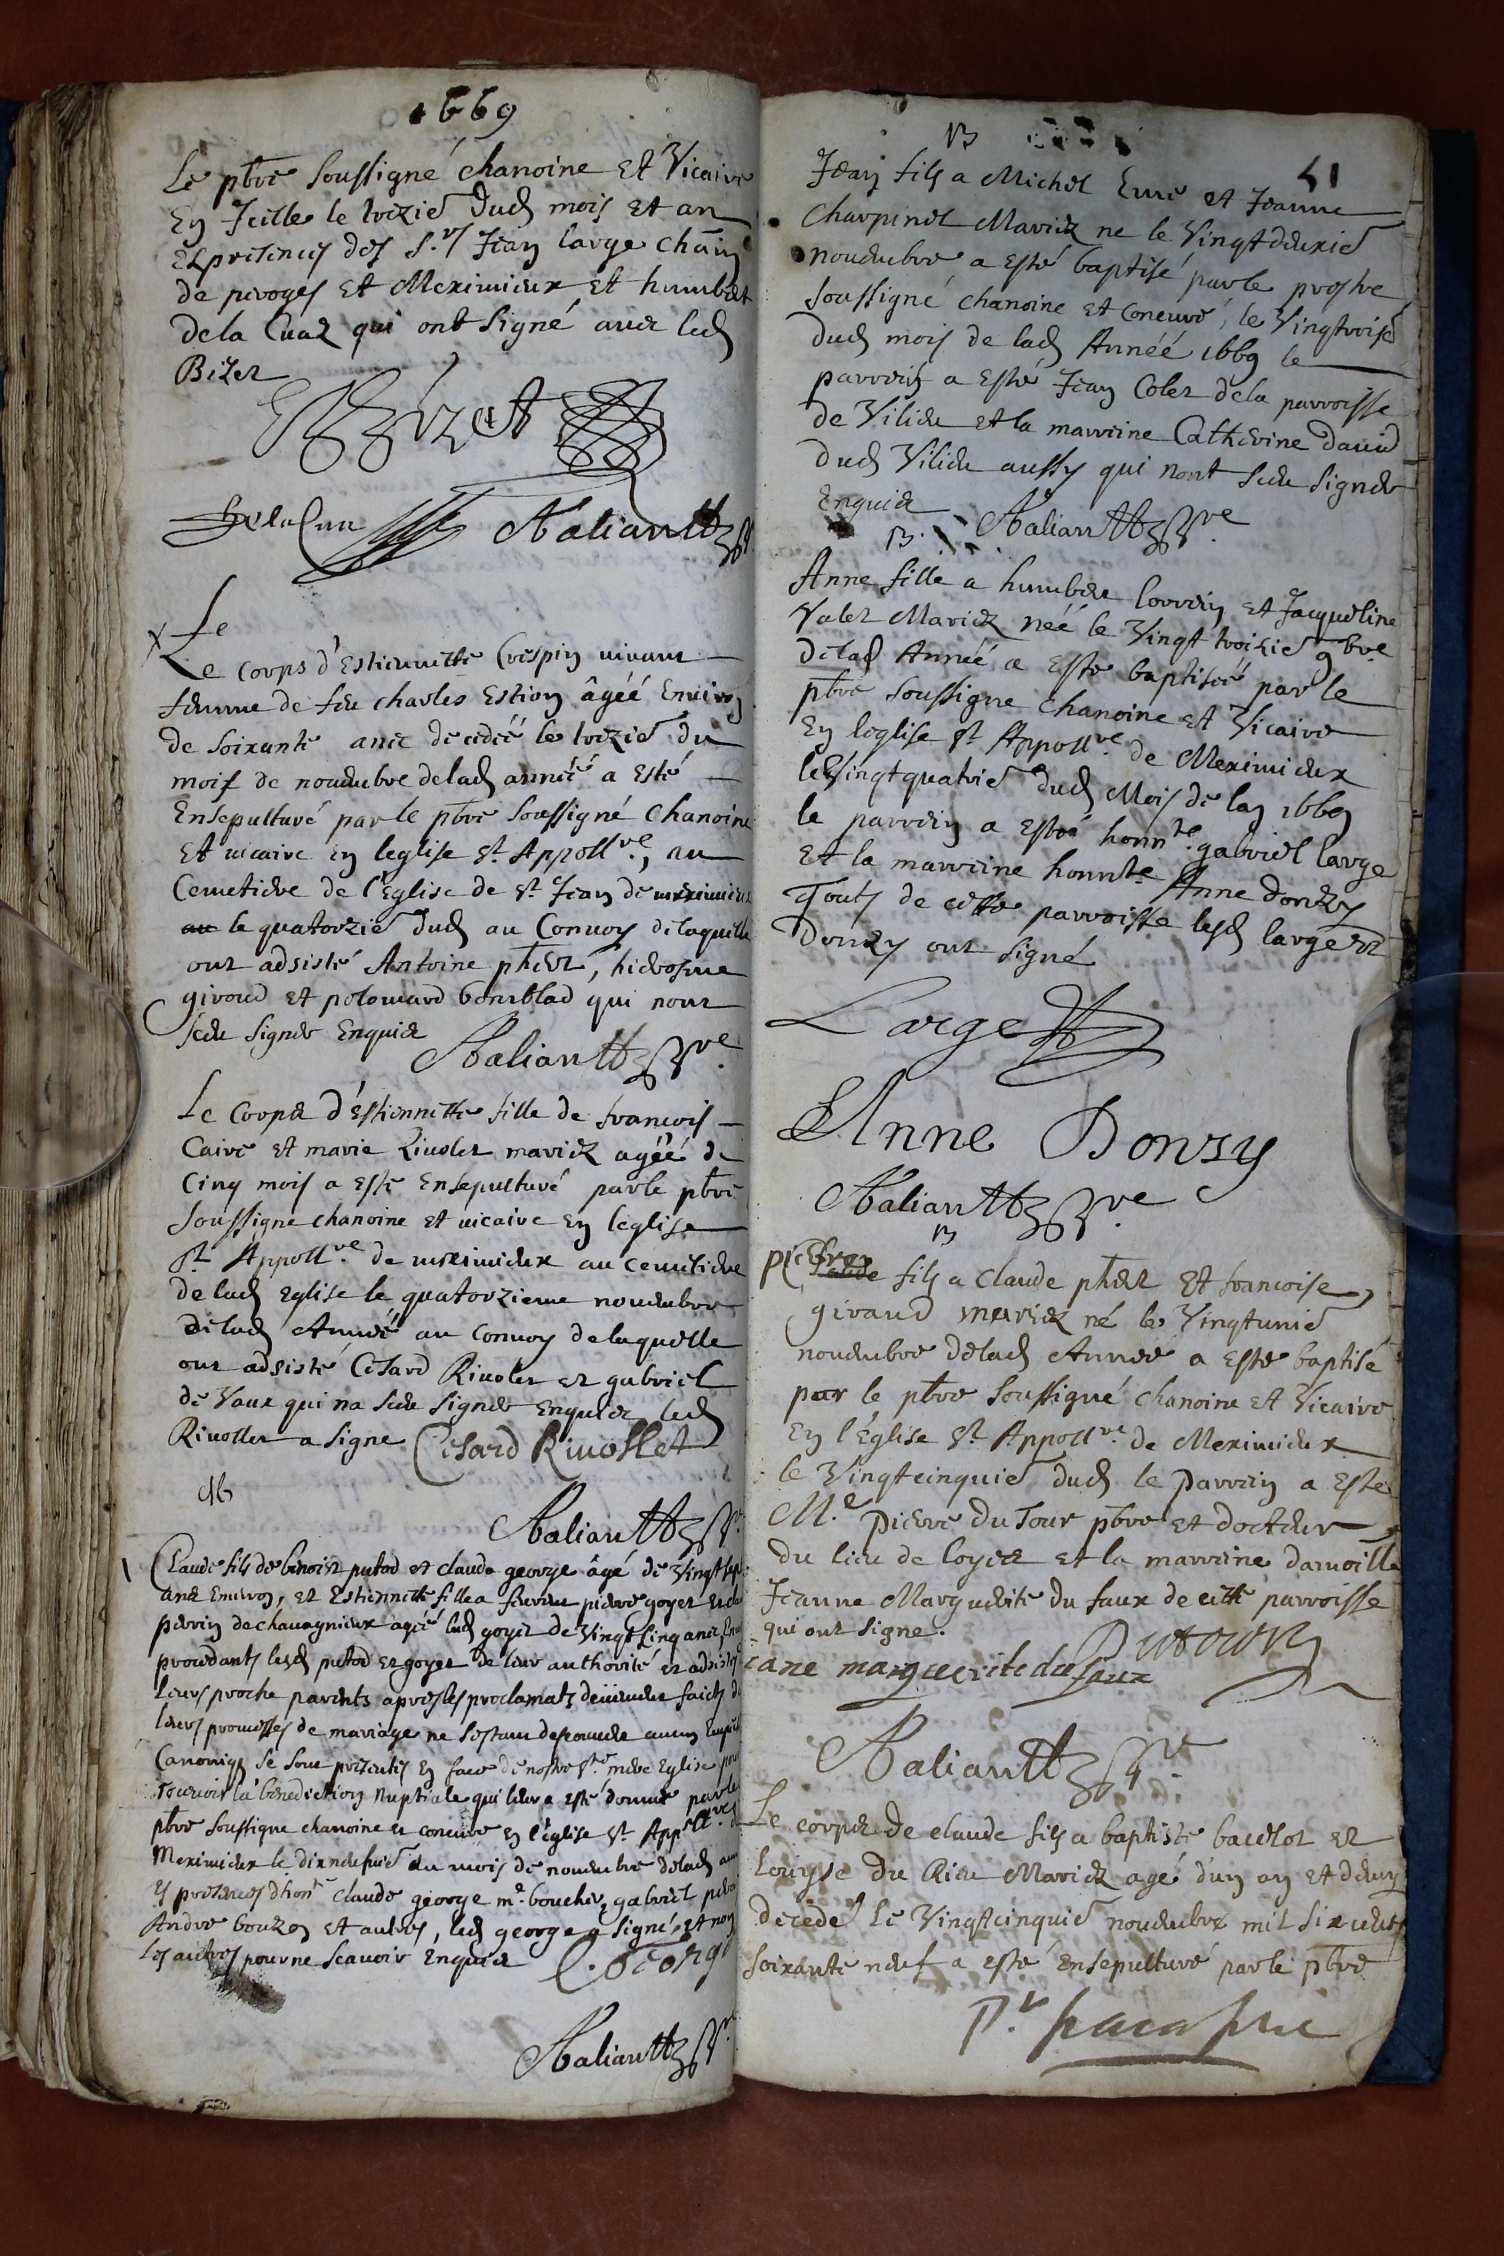 1669
Le pbre soussigné chanoine et Vicaire
En Icelle le treizie dud mois et an
Es presences des Srs Jean large chāin
de peroges et Meximieux et humbert
dela Cuaz qui ont signé avec led
Bizet
Bizet
Delacua Baliantt pbre
Le
Le corps d'Estiennette Crespin vivant
femme de feu charles Estion âgéé Environ
de soixante ans decedéé le treizie du
mois de nouembre delad année a esté
Ensepulturé par le pbre soussigné chanoine
Et vicaire en leglise St Appollre, au
Cemetiere de l'Eglise de St Jean de meximieux
au le quatorzie dud au Convoy delaquelle
ont adsisté Antoine phert, hierosme
giroud et polomard bonrblad qui nont
sceu signer Enquis
Baliantt pbre
Le Corps d'Estiennette fille de francois
Caire et marie Riuolet mariez agéé de
Cinq mois a este Ensepulturé parle pbre
soussigne chanoine et vicaire en leglise
St Appollre de meximieux au cemetiere
delad Eglise le quatorzieme nouembre
delad Année au Convoy delaquelle
ont adsisté Cesard Riuolet et gabriel
de Vaux qui na sceu signer Enquis led
Riuollet a signe Cesard Riuollet
M
Baliantt pbre
Claude fils de benoist putod et claude george âgé de Vingt sept
ans Environ, et Estiennette fille a feu pierre goyet et
perrin de chauagnieux agéé lad goyet de Vingt Cinq ans
procedants lesd putod et goyet de leur authorité et adsistés
leurs proche parents apres les proclamats deüement faicts de
leurs promesses de mariage ne s'estant descouuert aucun Empech
Canoniq se sont presentés en face de nostre Ste mere Eglise pour
receuoir la benediction Nuptiale qui leur a esté donneé par le
pbre soussigne chanoine et concuré en l'église St Appollre de
Meximieux le dixneufuie du mois de nouembre delad
Es presences d'honte claude george me boucher, gabriel
Andre bouzon et autres, led george a signé et non
les autres pour ne scauoir Enquis C. George
Baliantt pbre
B
51
Jean fils a Michel Eure et Jeanne
Charpinel Mariez ne le Vingtdeuxie
nouembre a esté baptisé par le prestre
soussigné chanoine et concuré, le Vingtroisie
dud mois de lad Année 1669 le
parrein a esté Jean Colet dela parroisse
de Vilieu et la marreine Catherine dauid
dud Vilieu aussy qui nont sceu signer
Enquis Baliantt pbre
B
Anne fille a humbert lorrein et Jacqueline
Valet Mariez néé le Vingt troizie 9bre
delad Année a este baptiséé par le
pbre soussigne chanoine et Vicaire
En leglise St Appollre de Meximieux
le Vingtquatrie dud Mois de lan 1669
le parrein a esté honnte gabriel large
et la marreine honnte Anne donzy
Touts de cette parroisse lesd large et
Donzy ont signé
Large
Anne Donzy
Baliantt pbre
B
Pierre fils a Claude phert Et francoise
giraud mariez né le Vingtunie
nouembre delad Année a este baptisé
par le pbre soussigné chanoine et Vicaire
En l'Église St Appollre de Meximieux
le Vingtcinquie dud le Parrein a este
Me Pierre Du Tour pbre et docteur
du lieu de loyes et la marreine damoille
Jeanne Marguerite du faux de cette parroisse
qui ont signe. Dutour
iane marguerite du faux
Baliantt pbre
Le corps de claude fils a baptiste bacelot et
Louyse du Rieu Mariez agé d'un an et demy
decedé le Vingtcinquie nouembre mil six cents
soixante neuf a esté ensepulturé par le pbre